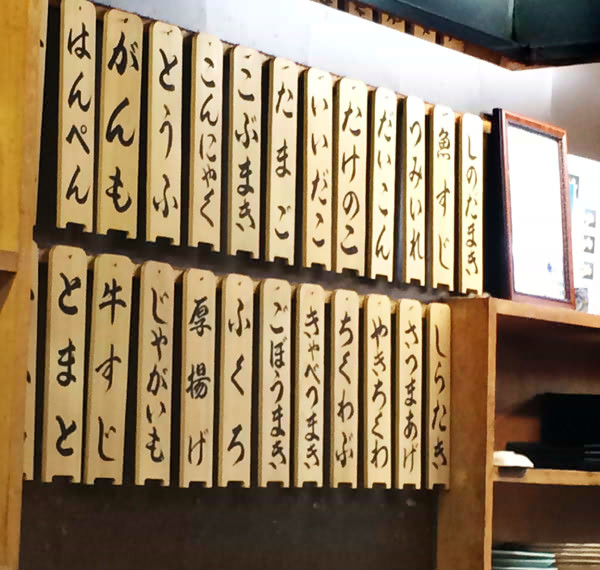 しのだまき
魚すじ
つみいれ
だいこん
たけのこ
いいだこ
たまご
こぶまき
こんにゃく
とうふ
がんも
はんぺん
しらたき
さつまあげ
やきちくわ
ちくわぶ
きゃべつまき
ごぼうまき
ふくろ
厚揚げ
じゃがいも
牛すじ
とまと